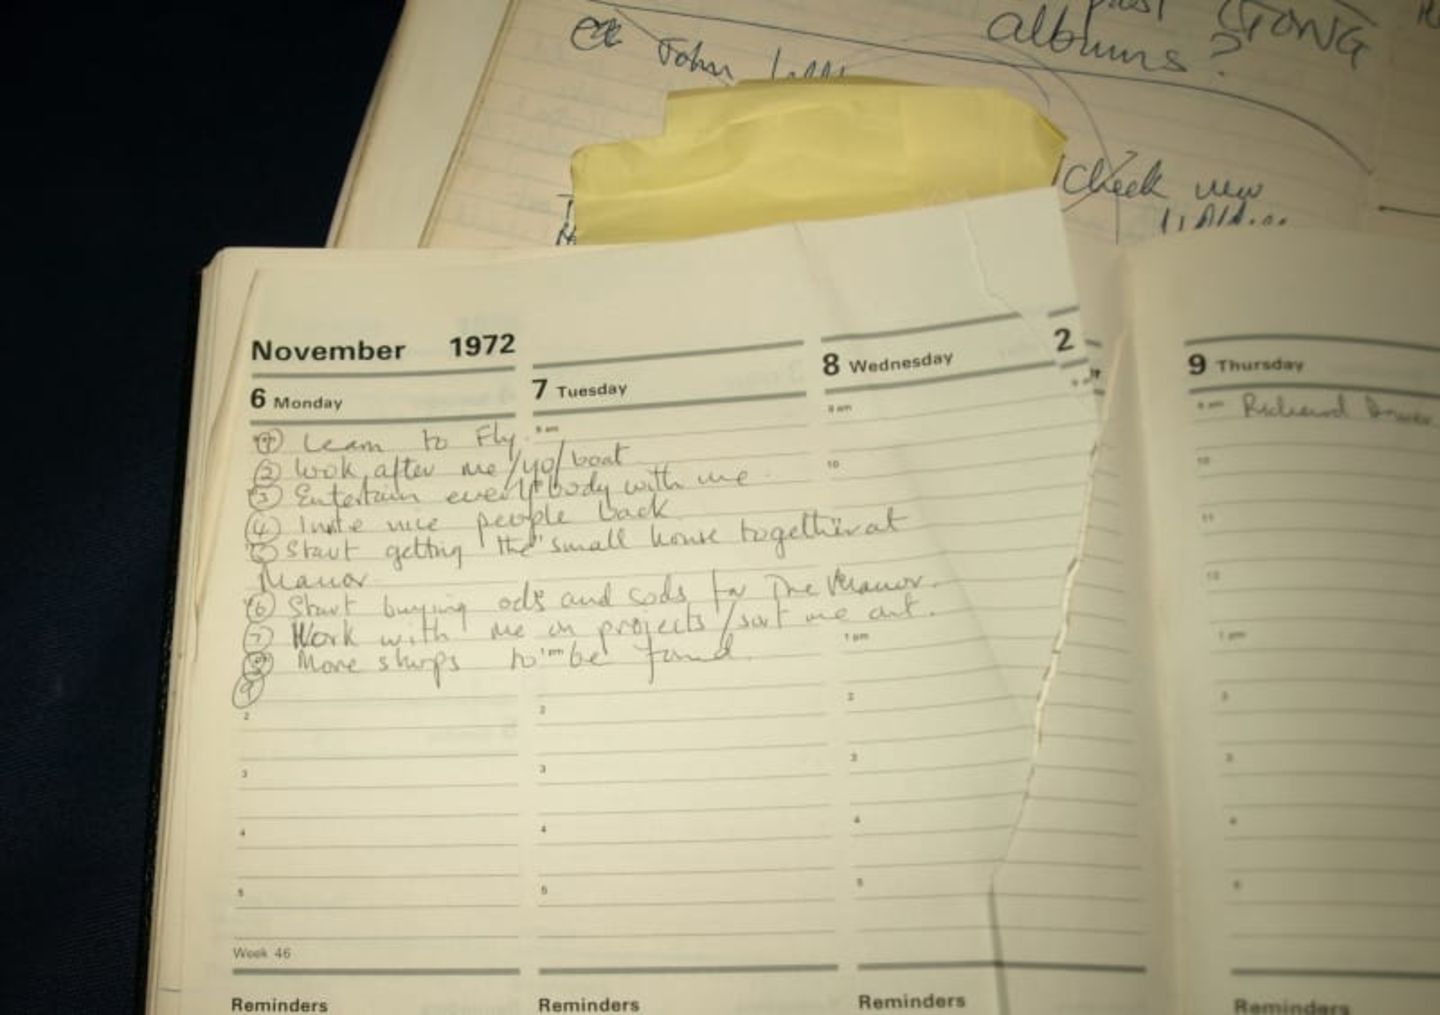 past GONG
albums?
John
Check new
November 1972
6 Monday
7 Tuesday
8 Wednesday
2
9 Thursday
9 am
9 am
9 am
Richard
① Learn to Fly.
② Look after me/yo/boat
③ Entertain everybody with me
④ Invite nice people back
⑤ Start getting the small house together at
Manor
⑥ Start buying ods and sods for The Manor.
⑦ Work with me on projects/sort me out.
⑧ More shops to be found.
⑨
10
10
11
12
1 pm
1 pm
2
2
2
2
3
3
3
3
4
4
4
4
5
5
5
5
Week 46
Reminders
Reminders
Reminders
Reminders